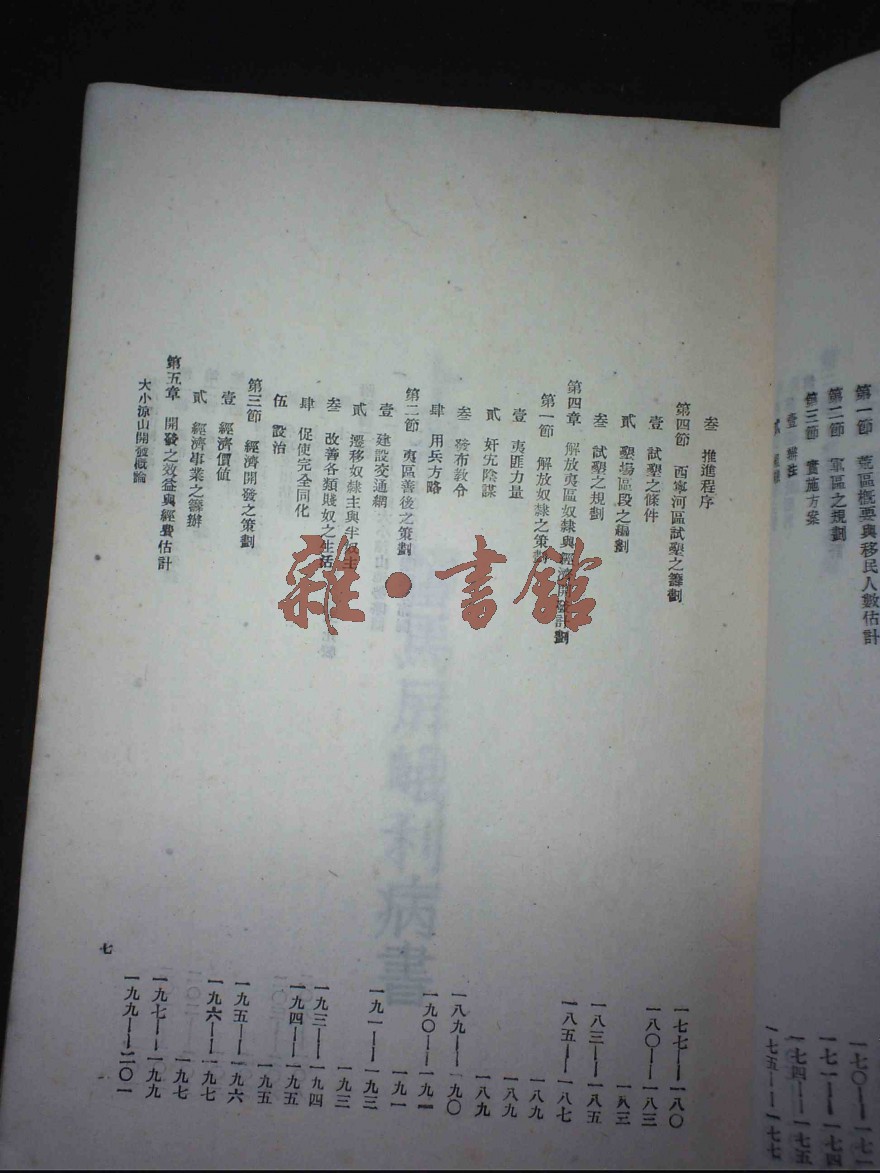 第一節 荒區概要與移民人數估計 一七〇——一七一
第二節 區之規劃 一七一——一七四
第三節 實施方案 一七四——一七五
壹 一七五——一七七
叁 推進程序 一七七——一八〇
第四節 西寧河區試墾之籌劃 一八〇——一八三
壹 試墾之條件 一八三
貳 墾場區段之編劃 一八三——一八五
叁 試墾之規劃 一八五——一八七
第四章 解放夷區奴隸與經濟開發計劃 一八九
第一節 解放奴隸之策劃 一八九
壹 夷匪力量 一八九
貳 奸宄陰謀 一八九——一九〇
叁 發布教令 一九〇——一九一
肆 用兵方略 一九一
第二節 夷區善後之策劃 一九一——一九三
壹 建設交通網 一九三
貳 遷移奴隸主與半奴主 一九三——一九四
叁 改善各類賤奴之生活 一九四——一九五
肆 促使完全同化 一九五
伍 設治 一九五——一九六
第三節 經濟開發之策劃 一九六——一九七
壹 經濟價值 一九七
貳 經濟事業之籌辦 一九七——一九九
第五章 開發之效益與經費估計 一九九——二〇一
大小涼山開發概論
七
雜·書館